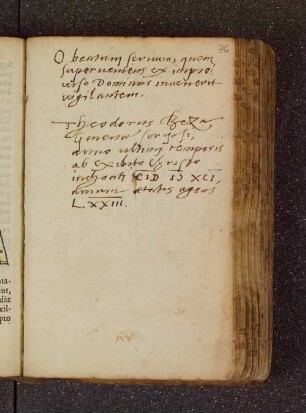 76
O beatum servum, quem
superveniens ex impro-
viso Dominus invenerit
vigilantem.
Theodorus Beza
Genevae scripsi,
anno ultimi temporis
ab exhibito Christo
inchoati CIƆ IƆ XCI,
annum aetatis agens
LXXIII.
ta-
us,
diæ
xil-
pro